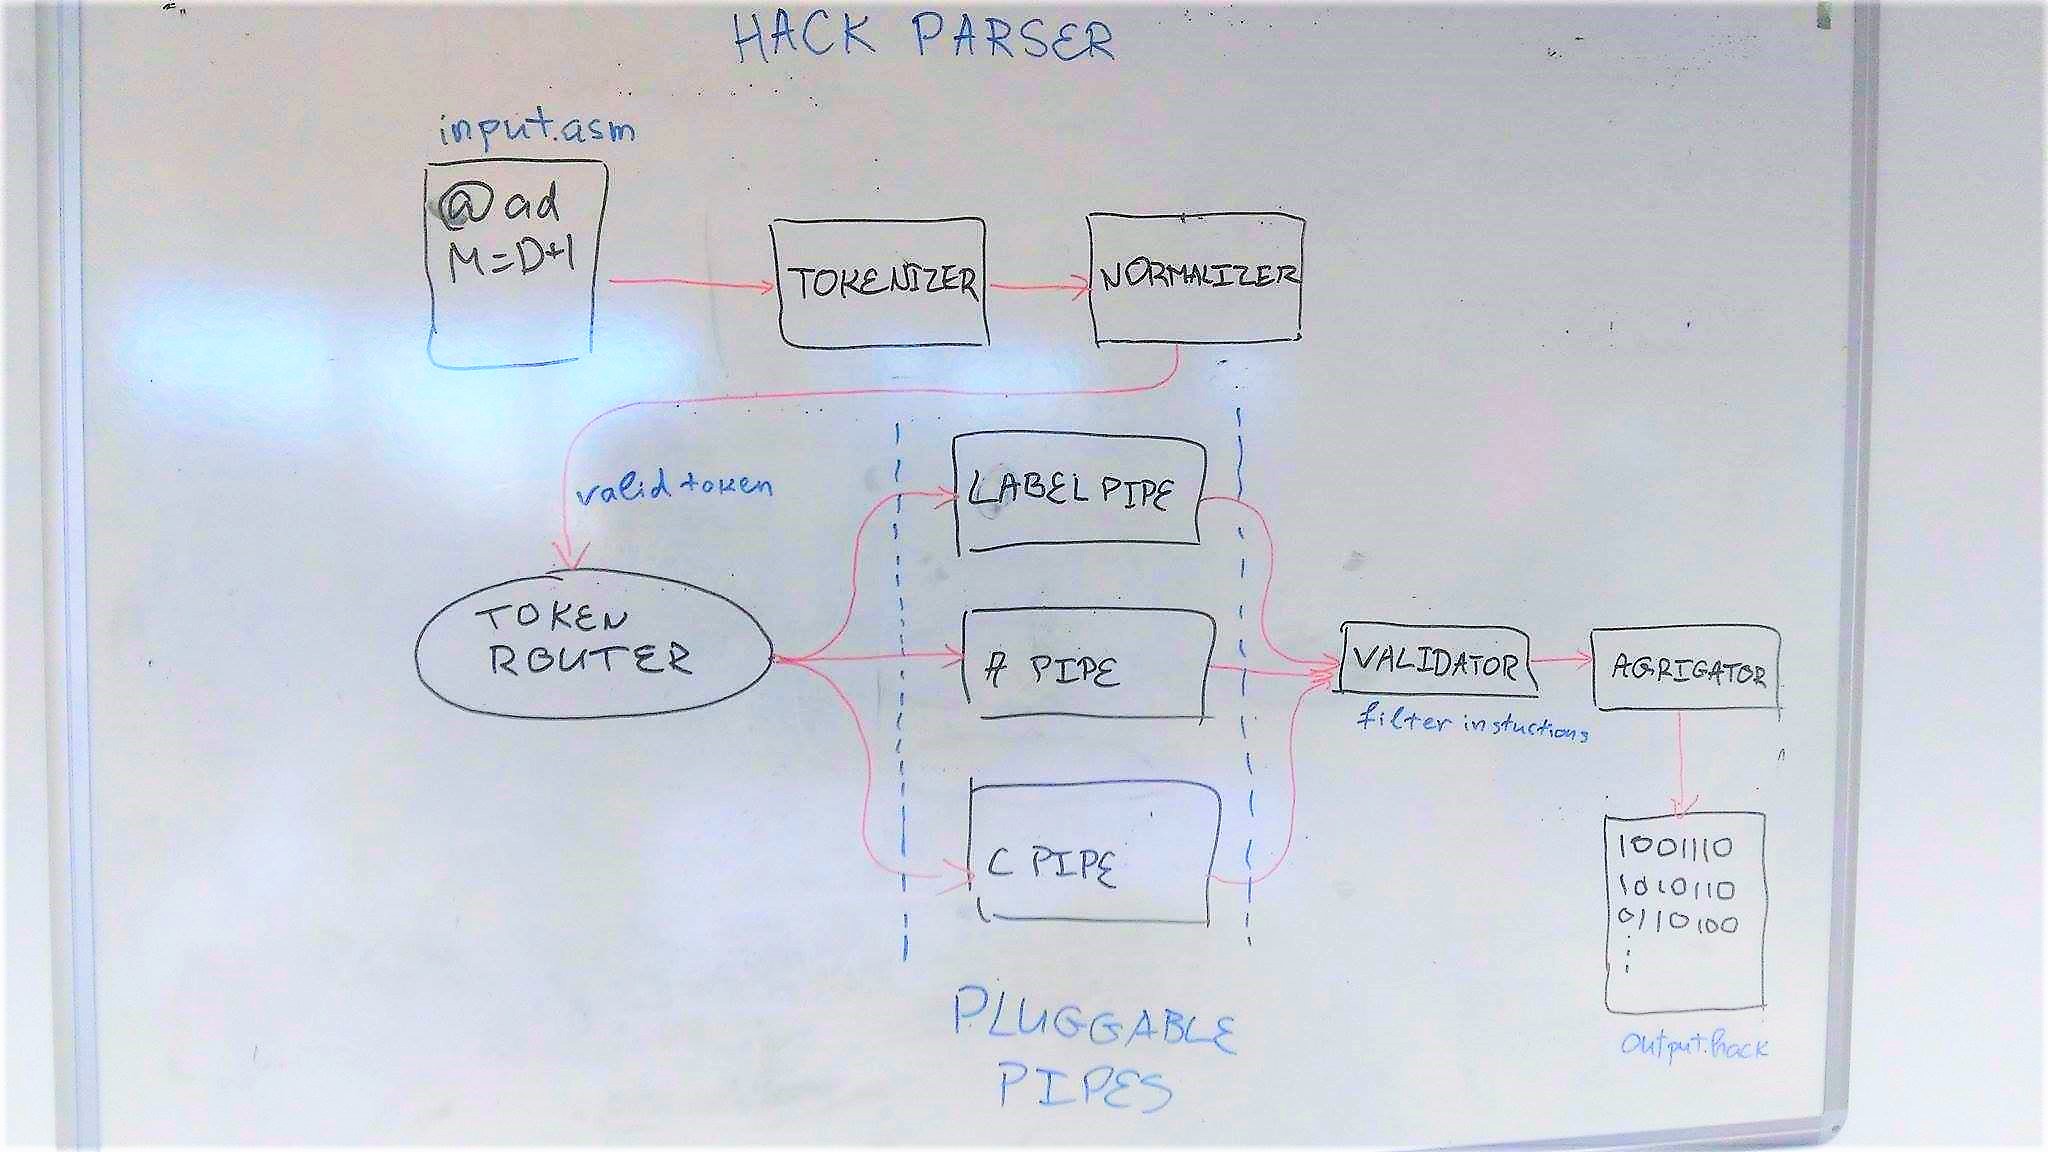 HACK PARSER
input.asm
@ad
M=D+1
TOKENIZER
NORMALIZER
valid token
TOKEN
ROUTER
LABEL PIPE
A PIPE
C PIPE
VALIDATOR
filter instuctions
AGRIGATOR
1001110
1010110
0110100
⋮
output.hack
PLUGGABLE
PIPES